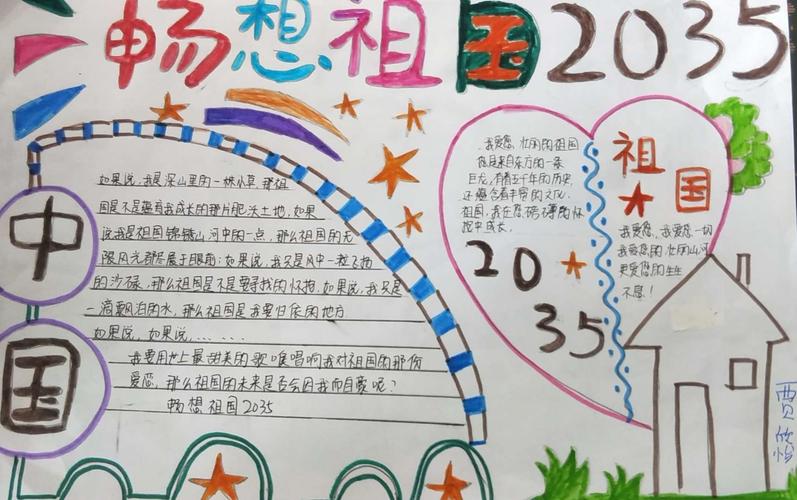 畅想祖国2035
中
国
如果说,我是深山里的一株小草,那祖
国是不是蕴育我成长的那片肥沃土地,如果
说我是祖国锦锈山河中的一点,那么祖国的无
限风光都尽展于眼前;如果说,我只是风中一粒飞扬
的沙砾,那么祖国是不是要寻找的怀抱,如果说,我只是
一滴要风泊的水,那么祖国是我要归依的地方
如果说,如果说,......
我要用世上最甜美的歌喉唱响我对祖国的那份
爱恋,那么祖国的未来是否会因我而自豪呢?
畅想祖国2035
我爱您,壮阔的祖国
您是来自东方的一条
巨龙,有着五千年的历史,
还蕴含着丰富的文化
祖国,我在您磅礴的怀
抱中成长。
20
35
祖
国
我爱您,我爱您一切
我爱您的壮阔山河
更爱您的生生
不息!
贾欣怡